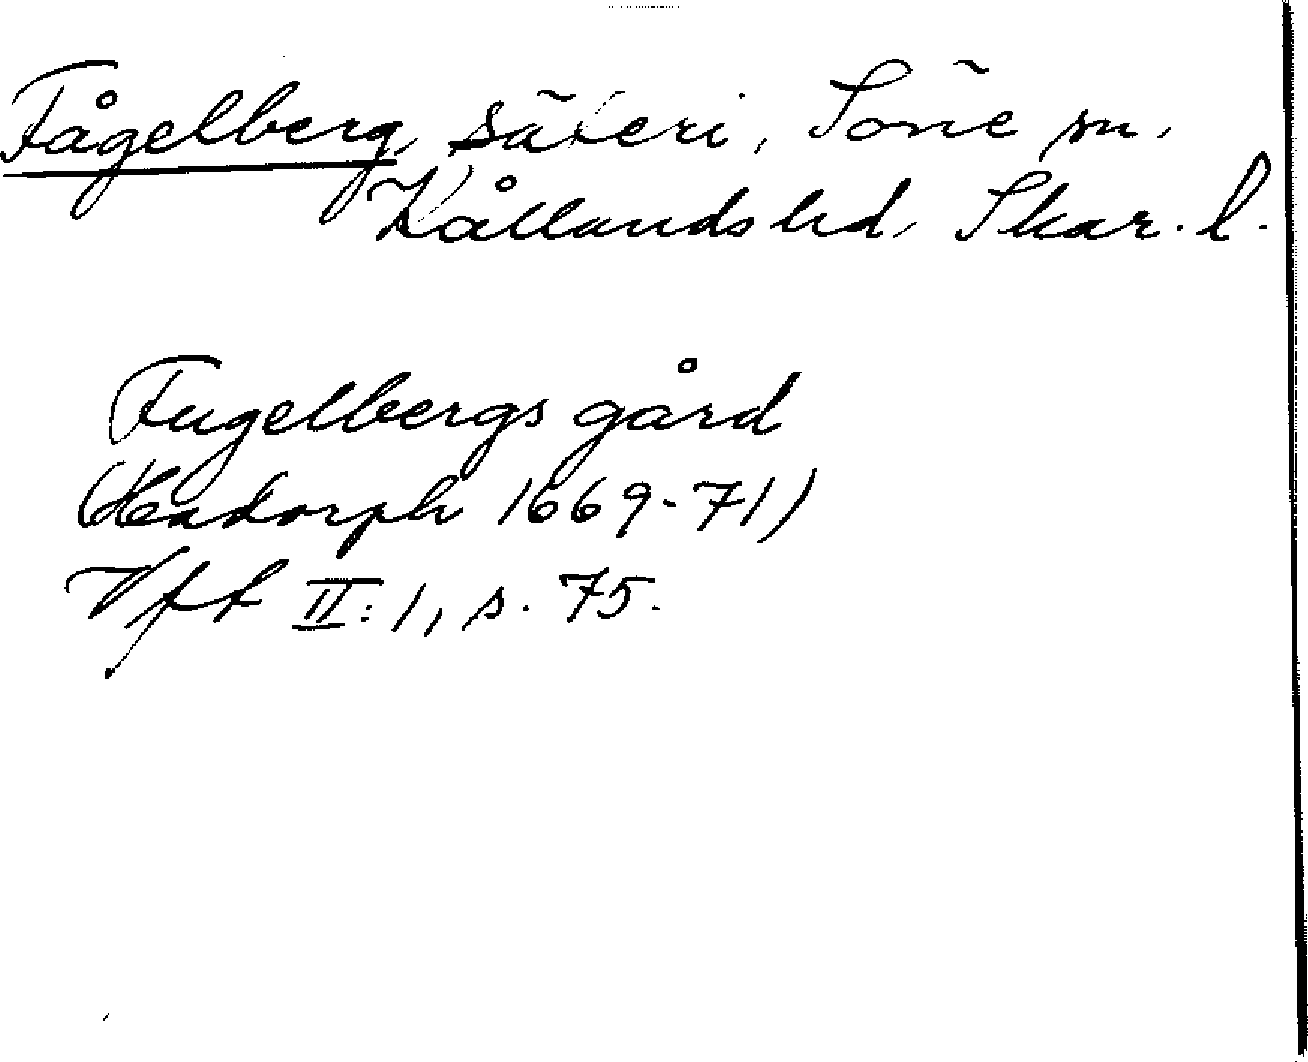 Fågelberg, säteri, Söne sn,
Kållands hd, Skar. l.
Fugelbergs gård
(Hadorph 1669-71)
Vft II:1, s. 75.